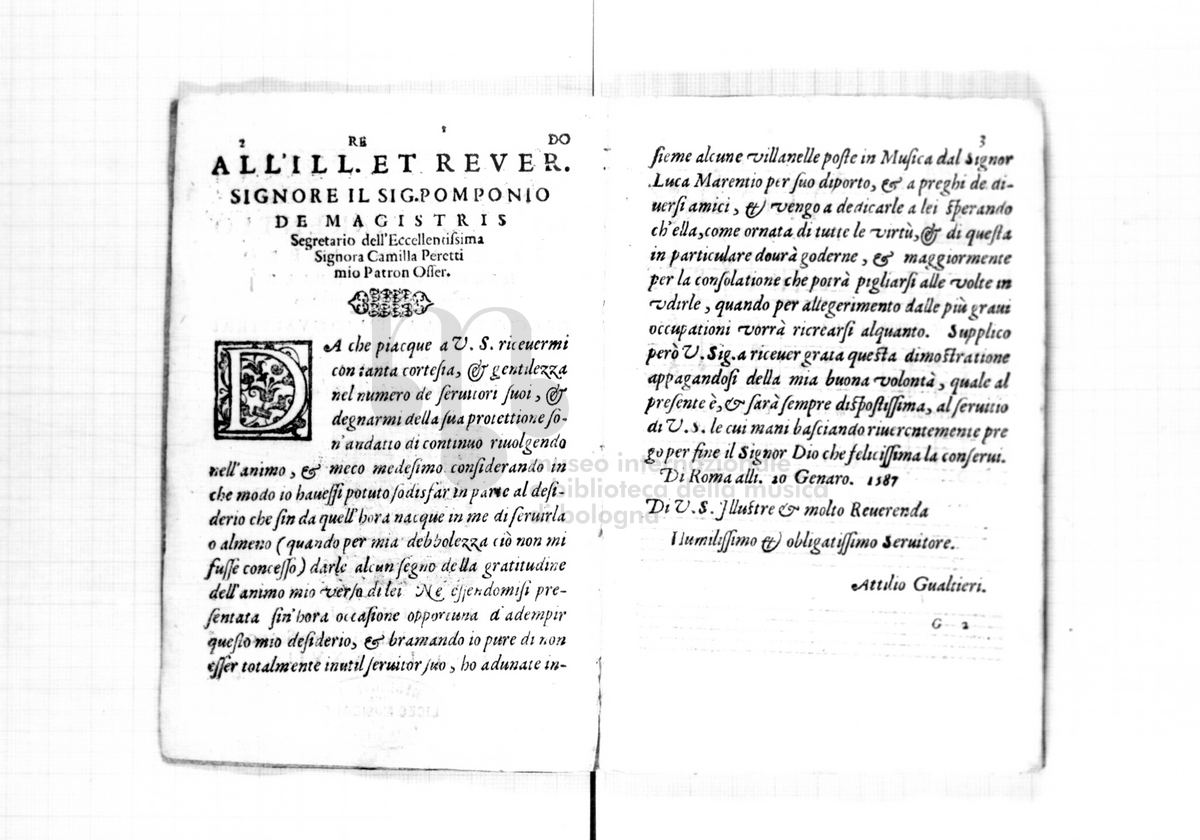 2
RE DO
ALL'ILL. ET REVER.
SIGNORE IL SIG.POMPONIO
DE MAGISTRIS
Segretario dell'Eccellentissima
Signora Camilla Peretti
mio Patron Osser.
DA che piacque a V. S. riceuermi
con tanta cortesia, & gentilezza
nel numero de seruitori suoi, &
degnarmi della sua protettione so-
n'andatto di continuo riuolgendo
nell'animo, & meco medesimo considerando in
che modo io hauessi potuto sodisfar in parte al desi-
derio che fin da quell'hora nacque in me di seruirla
o almeno (quando per mia debbolezza ciò non mi
fusse concesso) darle alcun segno della gratitudine
dell'animo mio verso di lei Ne essendomisi pre-
sentata sin'hora occasione opportuna d'adempir
questo mio desiderio, & bramando io pure di non
esser totalmente inutil seruitor suo, ho adunate in-
3
sieme alcune villanelle poste in Musica dal Signor
Luca Marentio per suo diporto, & a preghi de di-
uersi amici, & vengo a dedicarle a lei sperando
ch'ella,come ornata di tutte le virtù,& di questa
in particulare dourà goderne, & maggiormente
per la consolatione che potrà pigliarsi alle volte in
vdirle, quando per allegerimento dalle più graui
occupationi vorrà ricrearsi alquanto. Supplico
però V. Sig.a riceuer grata questa dimostratione
appagandosi della mia buona volontà, quale al
presente è,& sarà sempre dispostissima, al seruitio
di V. S. le cui mani basciando riuerentemente pre
go per fine il Signor Dio che felicissima la conserui.
Di Roma alli. 10 Genaro. 1587
Di V. S. Jllustre & molto Reuerenda
Humilissimo & obligatissimo Seruitore.
Attilio Gualtieri.
G 2
museo internazionale
biblioteca della musica
di bologna